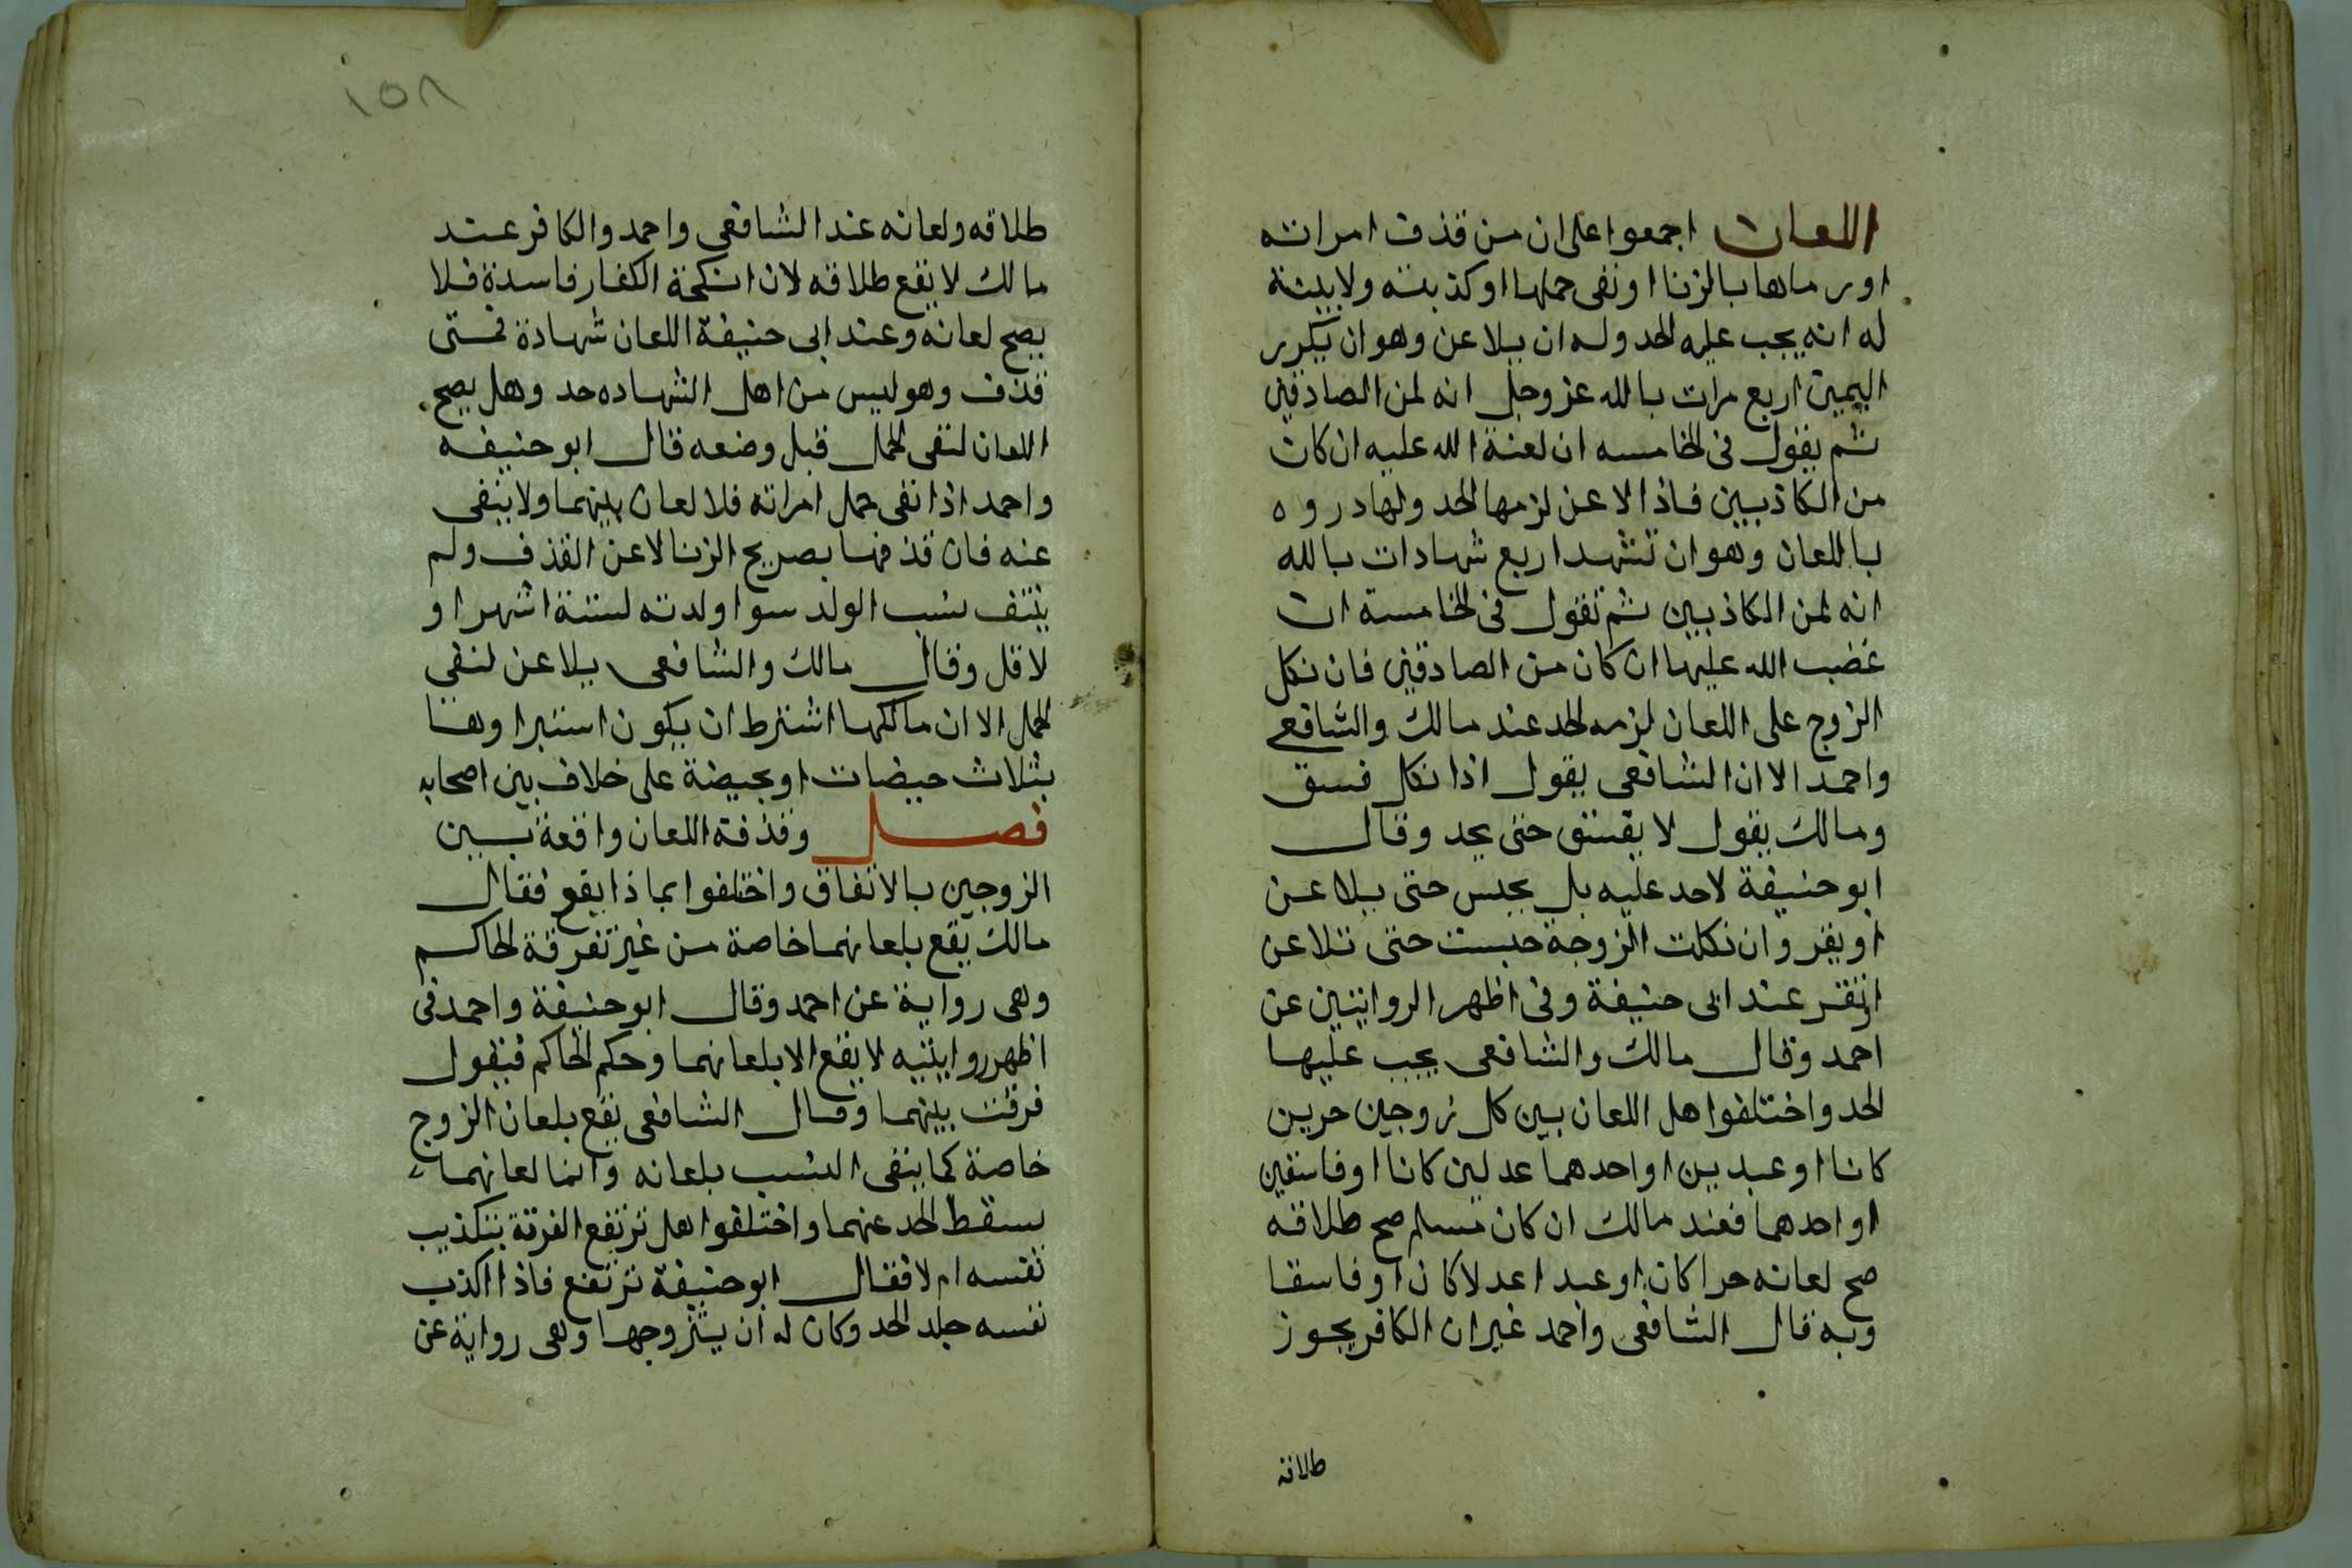 اللعان اجمعوا على ان من قذف امراته
او رماها بالزنا او نفى حملها او كذبته ولا بينة
له انه يجب عليه الحد وله ان يلاعن وهو ان يكرر
اليمين اربع مرات بالله عز وجل انه لمن الصادقين
ثم يقول فى الخامسه ان لعنة الله عليه ان كان
من الكاذبين فاذا لاعن لزمها الحد ولها دروه
باللعان وهو ان تشهد اربع شهادات بالله
انه لمن الكاذبين ثم تقول فى الخامسة ان
غضب الله عليها ان كان من الصادقين فان نكل
الزوج على اللعان لزمه الحد عند مالك والشافعي
واحمد الا ان الشافعى يقول اذا نكل فسق
ومالك يقول لا يفسق حتى يحد وقال
ابو حنيفة لاحد عليه بل يحبس حتى يلاعن
او يقر وان نكلت الزوجة حبست حتى تلاعن
او تقر عند ابى حنيفة وفى اظهر الروايتين عن
احمد وقال مالك والشافعى يجب عليها
الحد واختلفوا هل اللعان بين كل زوجين حرين
كانا او عبدين او احدهما عدلين كانا او فاسقين
او احدهما فعند مالك ان كان مسلم صح طلاقه
صح لعانه حرا كان او عبدا عدلا كان او فاسقا
وبه قال الشافعى واحمد غير ان الكافر يجوز
طلاقه
١٥٨
طلاقه ولعانه عند الشافعى واحمد والكافر عند
مالك لا يقع طلاقه لان انكحة الكفار فاسدة فلا
يصح لعانه وعند ابى حنيفة اللعان شهادة فمتى
قذف وهو ليس من اهل الشهاده حد وهل يصح
اللعان لنفى الحمل قبل وضعه قال ابو حنيفه
واحمد اذا نفى حمل امراته فلا لعان بينهما ولا ينفى
عنه فان قذفها بصريح الزنا لاعن القذف ولم
ينتف نسب الولد سوا ولدته لستة اشهر او
لاقل وقال مالك والشافعى يلاعن لنفى
الحمل الا ان مالكها اشترط ان يكون استبراوها
بثلاث حيضات او بحيضة على خلاف بين اصحابه
فصل وفذفة اللعان واقعة بين
الزوجين بالاتفاق واختلفوا بماذا يقع فقال
مالك يقع بلعانهما خاصة من غير تفرقة الحاكم
وهى رواية عن احمد وقال ابو حنيفة واحمد فى
اظهر روايتيه لا يقع الا بلعانهما وحكم الحاكم فيقول
فرقت بينهما وقال الشافعى يقع بلعان الزوج
خاصة كما ينفى النسب بلعانه وانما لعانهما
يسقط الحد عنهما واختلفوا هل ترتفع الفرقة بتكذيب
نفسه ام لا فقال ابو حنيفة ترتفع فاذا اكذب
نفسه جلد الحد وكان له ان يتزوجها وهى رواية عن